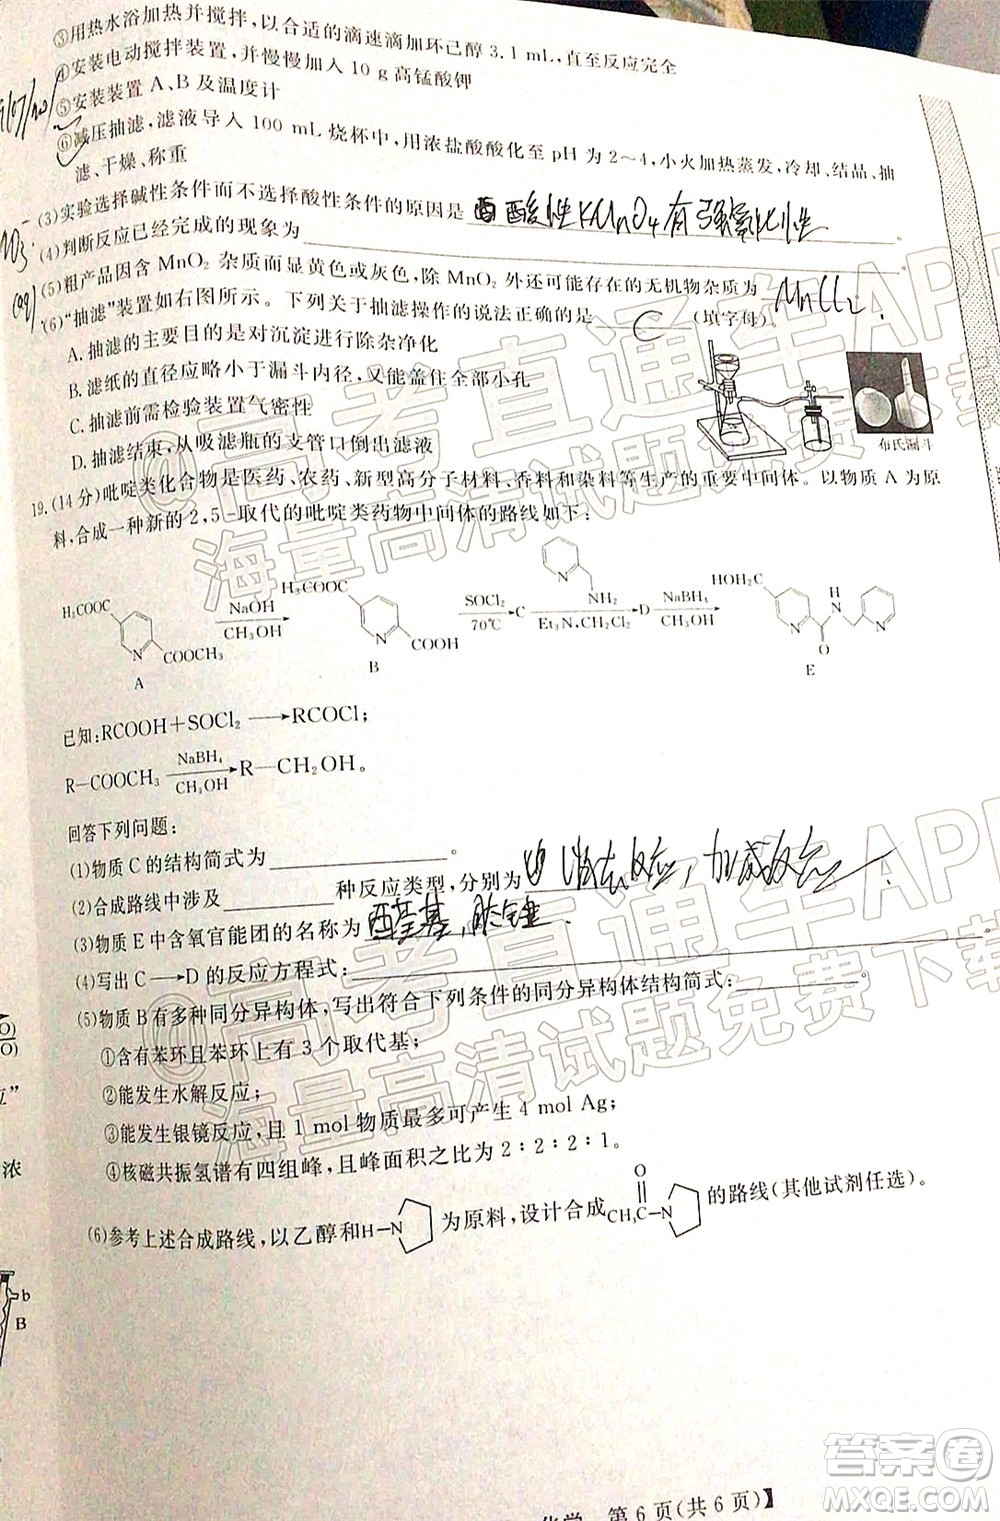 ③用热水浴加热并搅拌，以合适的滴速滴加环己醇 3.1 mL，直至反应完全
④安装电动搅拌装置，并慢慢加入 10 g 高锰酸钾
⑤安装装置 A、B 及温度计
⑥减压抽滤，滤液导入 100 mL 烧杯中，用浓盐酸酸化至 pH 为 2～4，小火加热蒸发，冷却、结晶、抽
滤、干燥、称重
(3)实验选择碱性条件而不选择酸性条件的原因是 酸性KMnO4有强氧化性
(4)判断反应已经完成的现象为
(5)粗产品因含 MnO₂ 杂质而显黄色或灰色，除 MnO₂ 外还可能存在的无机物杂质为 MnCl2.
(6)“抽滤”装置如右图所示。下列关于抽滤操作的说法正确的是 C (填字母)。
A. 抽滤的主要目的是对沉淀进行除杂净化
B. 滤纸的直径应略小于漏斗内径，又能盖住全部小孔
C. 抽滤前需检验装置气密性
D. 抽滤结束，从吸滤瓶的支管口倒出滤液
布氏漏斗
19. (14 分)吡啶类化合物是医药、农药、新型高分子材料、香料和染料等生产的重要中间体。以物质 A 为原
料，合成一种新的 2,5-取代的吡啶类药物中间体的路线如下：
H₃COOC N COOCH₃ A
NaOH CH₃OH
H₃COOC N COOH B
SOCl₂ 70℃ C
N NH₂ Et₃N、CH₂Cl₂ D
NaBH₄ CH₃OH
HOH₂C N O H N N E
已知：RCOOH＋SOCl₂ ⟶ RCOCl；
R—COOCH₃ NaBH₄ CH₃OH R—CH₂OH。
回答下列问题：
(1)物质 C 的结构简式为 。
(2)合成路线中涉及 种反应类型，分别为 取代反应，加成反应.
(3)物质 E 中含氧官能团的名称为
(4)写出 C⟶D 的反应方程式：
(5)物质 B 有多种同分异构体，写出符合下列条件的同分异构体结构简式： 。
①含有苯环且苯环上有 3 个取代基；
②能发生水解反应；
③能发生银镜反应，且 1 mol 物质最多可产生 4 mol Ag；
④核磁共振氢谱有四组峰，且峰面积比为 2∶2∶2∶1。
(6)参考上述合成路线，以乙醇和 H—N 为原料，设计合成 CH₃C—N O 的路线(其他试剂任选)。
b
B
浓
化学 第 6 页(共 6 页)】
@高考直通车APP
海量高清试题免费下载
@高考直通车APP
海量高清试题免费下载
答案圈
MXQE.COM